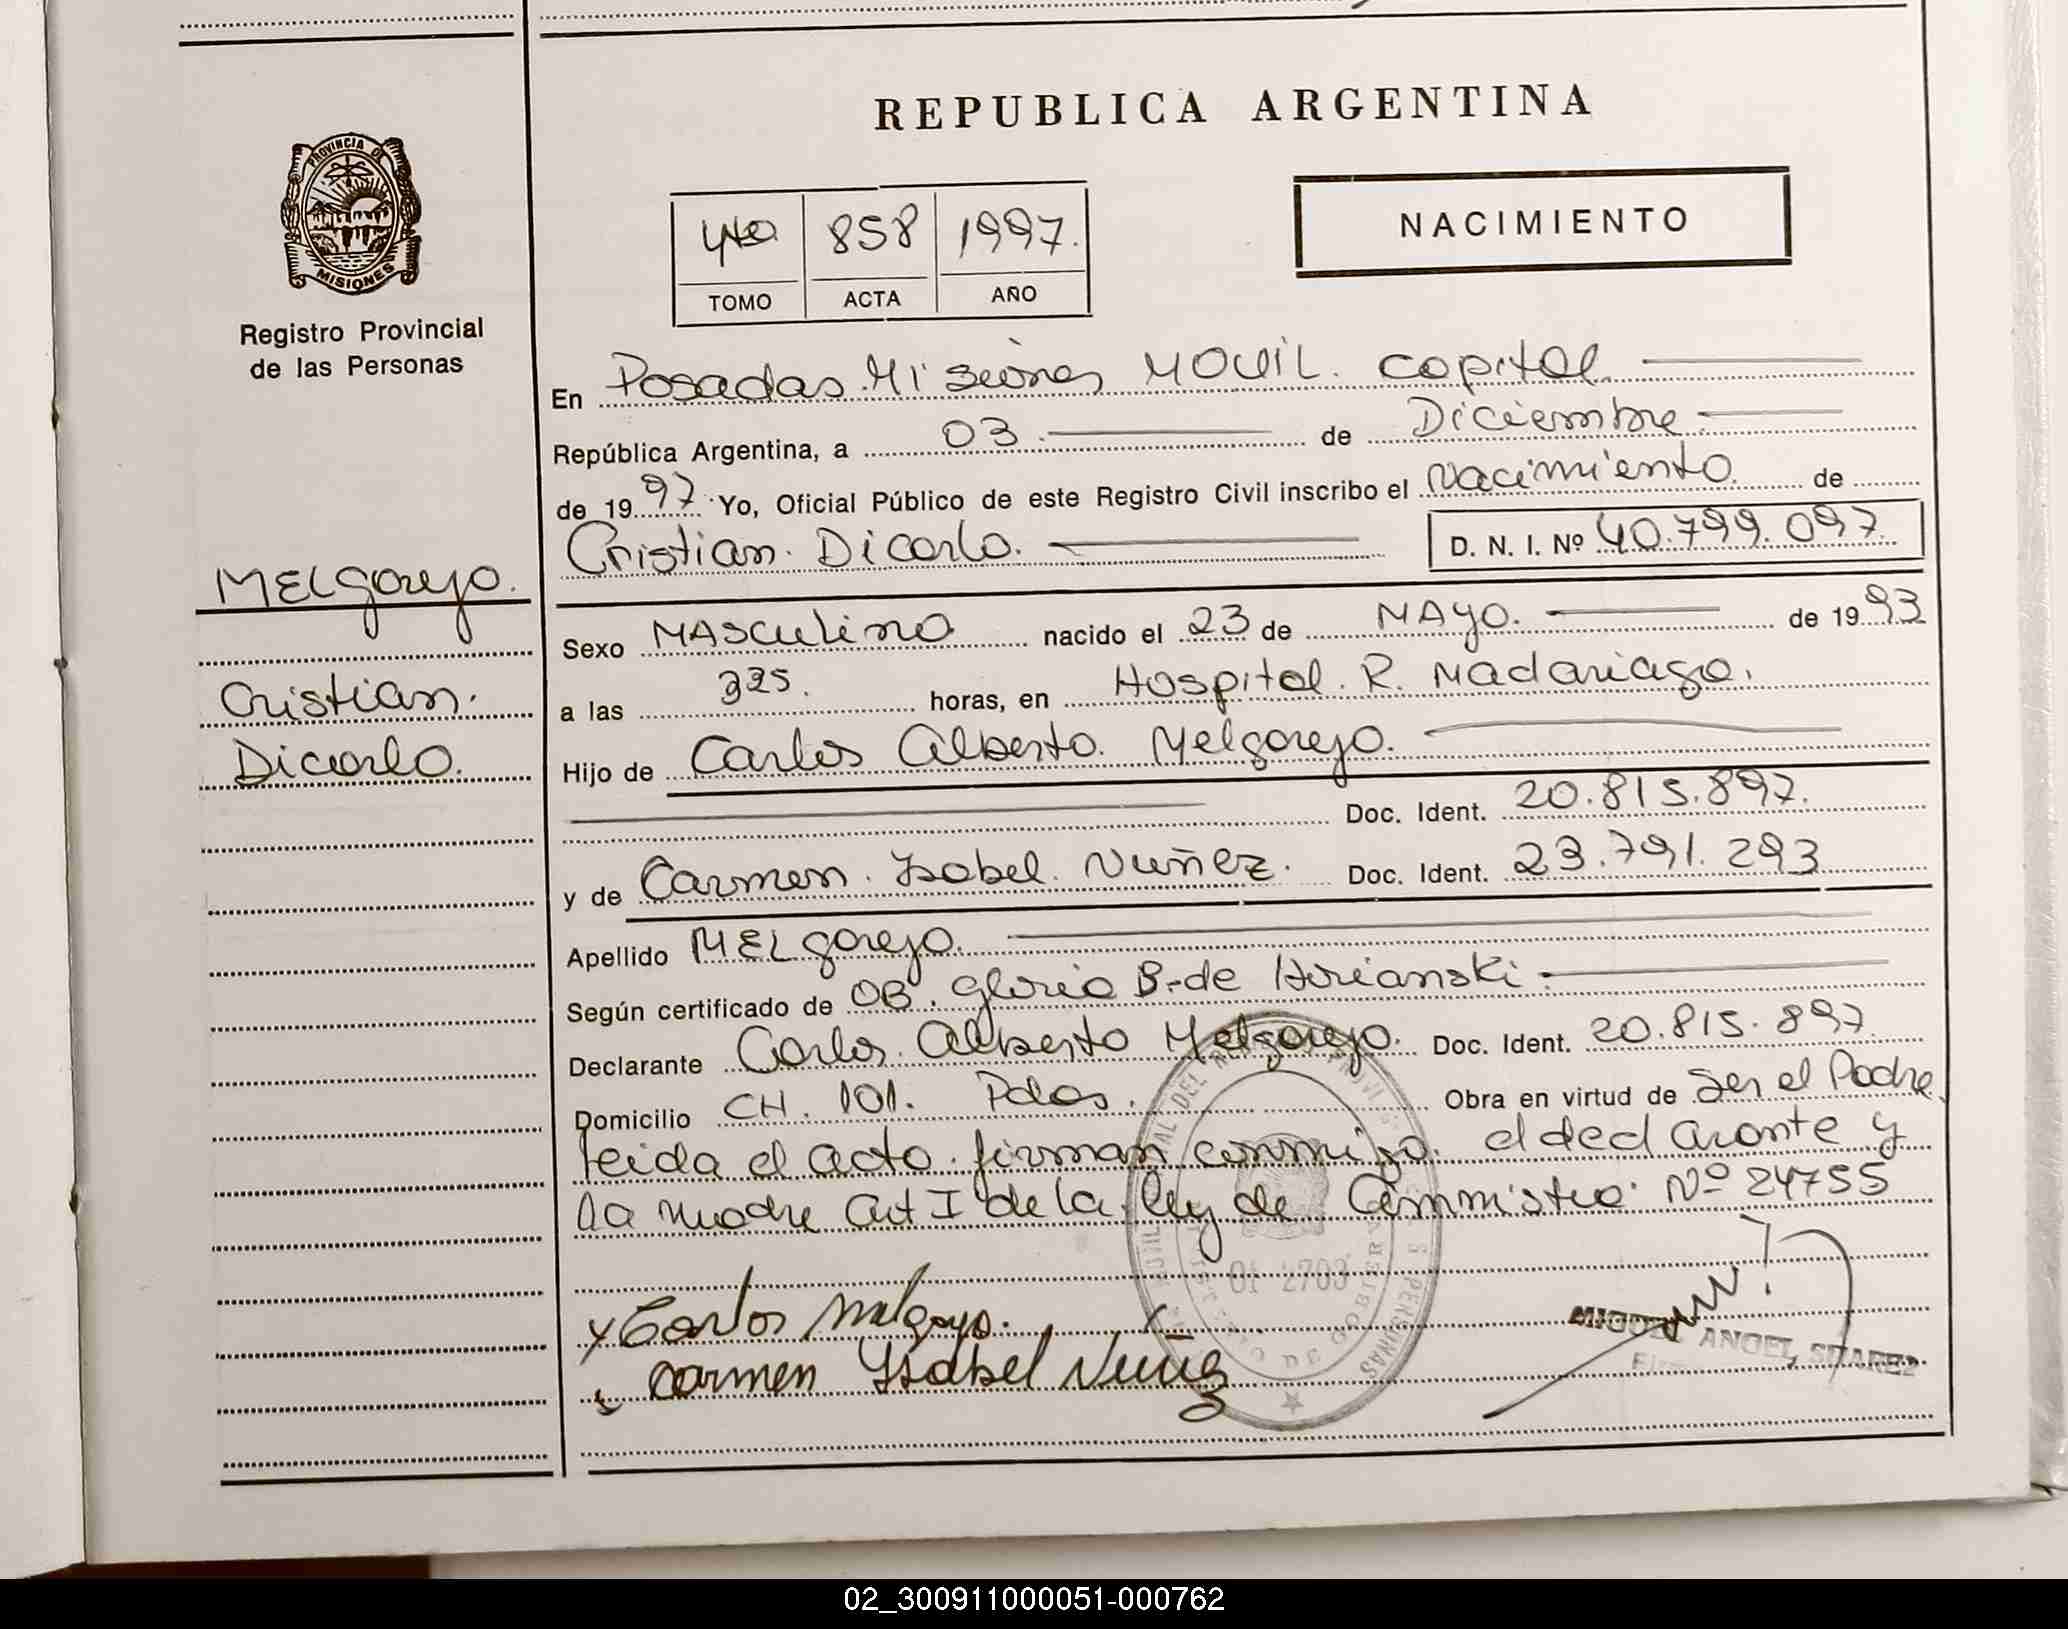 REPUBLICA ARGENTINA
PROVINCIA DE
MISIONES
Registro Provincial
de las Personas
NACIMIENTO
4to 858 1997.
TOMO ACTA AÑO
En Posadas Misiones MOVIL. Capital.
República Argentina, a 03. de Diciembre.
de 1997. Yo, Oficial Público de este Registro Civil inscribo el Nacimiento de
Cristian. Dicarlo. D. N. I. Nº 40.799.097.
MELgarejo.
Cristian.
Dicarlo.
Sexo MAsculino nacido el 23 de MAyo. de 1993
a las 325. horas, en Hospital. R. Madariaga.
Hijo de Carlos Alberto. Melgarejo.
Doc. Ident. 20.815.897.
y de Carmen. Isabel. Nuñez. Doc. Ident. 23.791.293
Apellido MELgarejo.
Según certificado de OB. Gloria B. de
Declarante Carlos. Alberto Melgarejo. Doc. Ident. 20.815.897.
Domicilio CH. 101. Pdas. Obra en virtud de Ser el Padre
leida el acta. firman conmigo. el declarante y
la madre Art I de la ley de Amnistia. Nº 24755
Carlos Melgarejo.
Carmen Isabel Nuñez
MIGUEL ANGEL SUAREZ
02_300911000051-000762